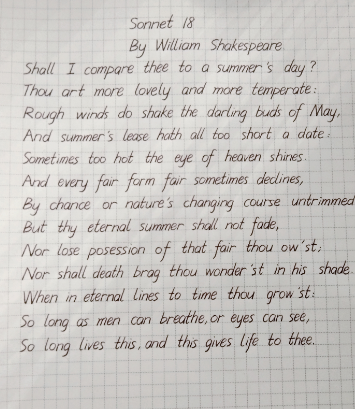 Sonnet 18
By William Shakespeare
Shall I compare thee to a summer's day?
Thou art more lovely and more temperate:
Rough winds do shake the darling buds of May,
And summer's lease hath all too short a date:
Sometimes too hot the eye of heaven shines.
And every fair form fair sometimes declines,
By chance or nature's changing course untrimmed
But thy eternal summer shall not fade,
Nor lose posession of that fair thou ow'st;
Nor shall death brag thou wonder'st in his shade.
When in eternal lines to time thou grow'st:
So long as men can breathe, or eyes can see,
So long lives this, and this gives life to thee.